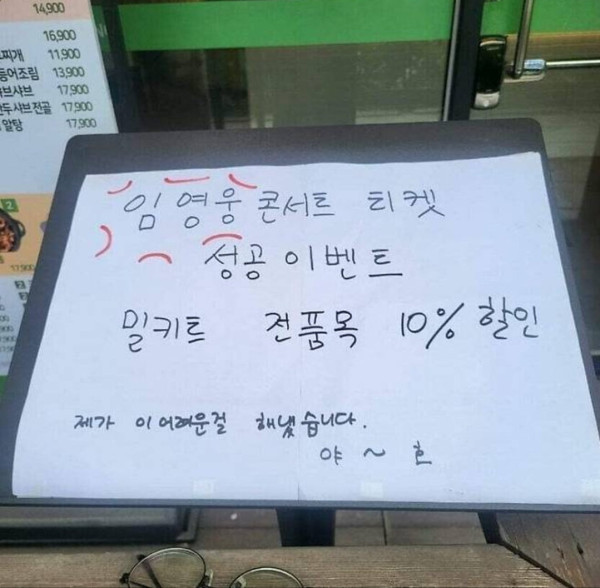 14,900
16,900
찌개 11,900
등어조림 13,900
샤브샤브 17,900
만두샤브전골 17,900
알탕 17,900
2
17,900
임영웅 콘서트 티켓
성공 이벤트
밀키트 전품목 10% 할인
제가 이 어려운걸 해냈습니다.
야 ~ 호